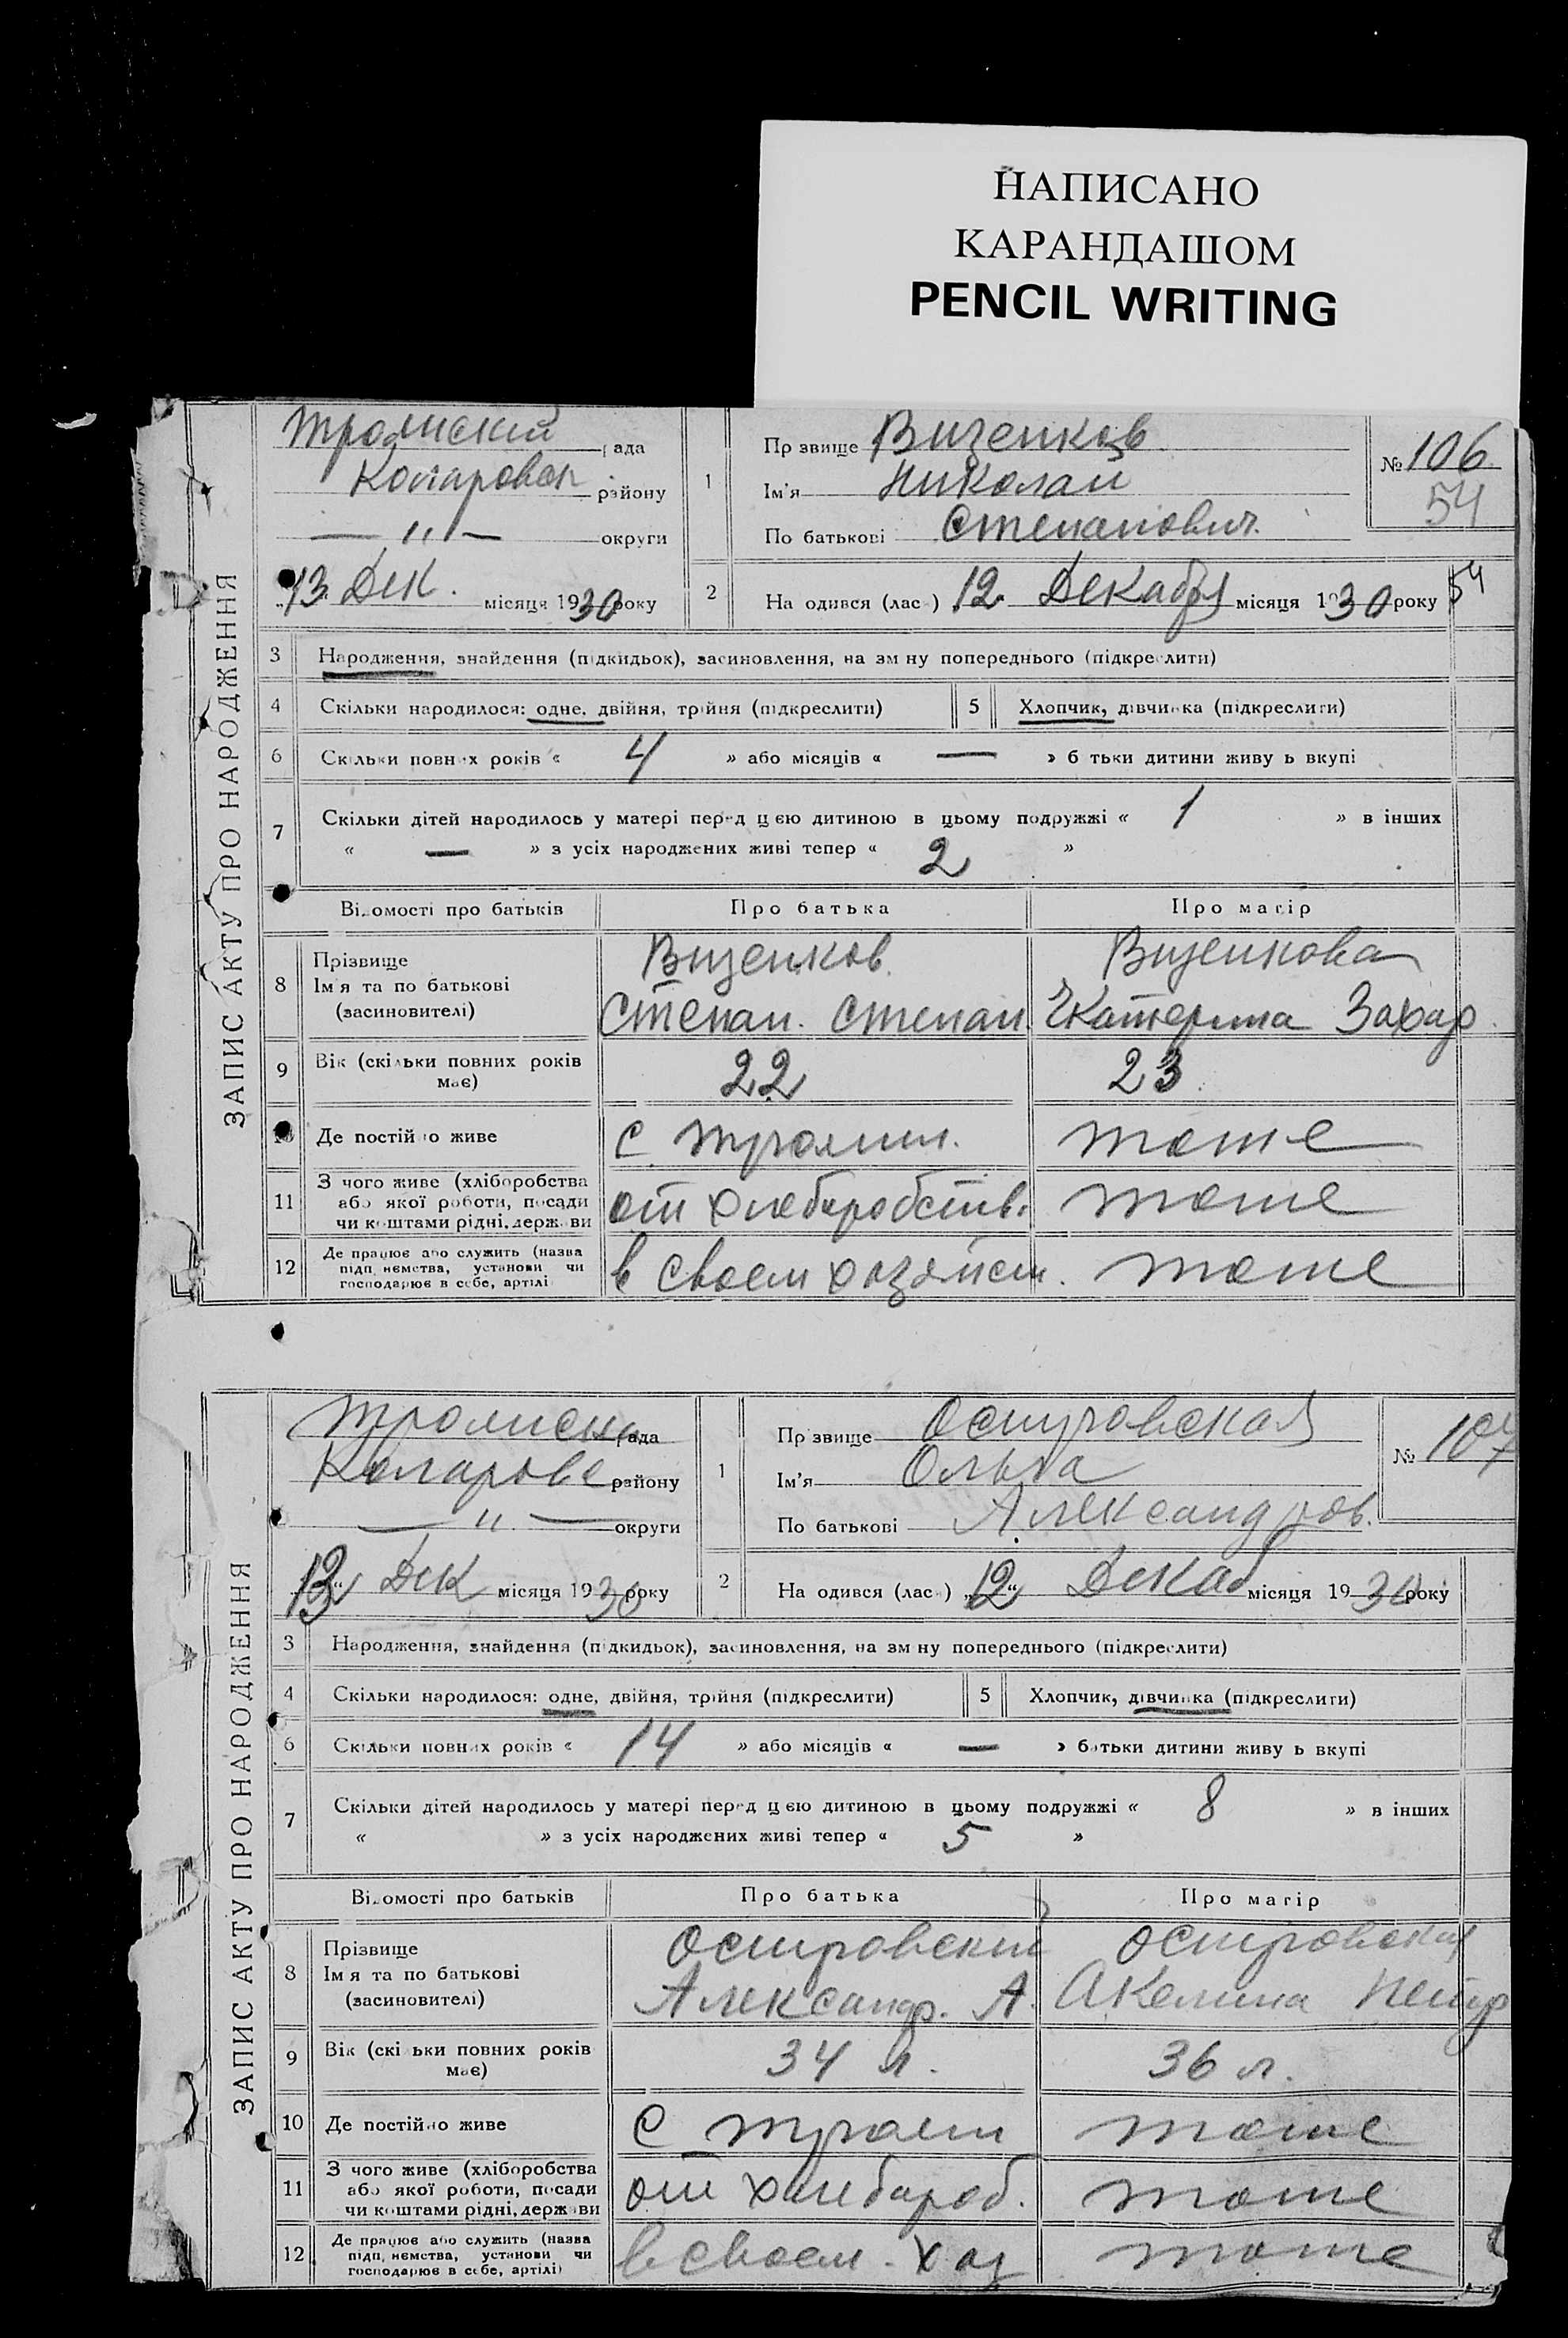 НАПИСАНО
КАРАНДАШОМ
PENCIL WRITING
ЗАПИС АКТУ ПРО НАРОДЖЕННЯ
рада
району
— " —
округи
13 Дек. місяця 1930 року
1
Пр звище Визенков
Ім'я Николай
По батькові Степанович
№ 106
54
2
На одився (лас ) 12 Декабря місяця 1930 року
54
3 Народження, знайдення (підкидьок), засиновлення, на зм ну попереднього (підкреслити)
4 Скільки народилося: одне, двійня, трійня (підкреслити)
5 Хлопчик, дівчинка (підкреслити)
6 Скільки повних років « 4 » або місяців « — » б тьки дитини живу ь вкупі
7 Скільки дітей народилось у матері перед цією дитиною в цьому подружжі « 1 » в інших
« — » з усіх народжених живі тепер « 2 »
Відомості про батьків
Про батька
Про матір
8
Прізвище
Ім'я та по батькові
(засиновителі)
Визенков
Степан. Степан
Визенкова
Екатерина Захар.
9 Вік (скільки повних років
має)
22
23
10 Де постійно живе
с.
тоже
11 З чого живе (хліборобства
або якої роботи, посади
чи коштами рідні, держави
от хлеборобств.
тоже
12 Де працює або служить (назва
підп немства, установи чи
господарює в себе, артілі
в своем хозяйст.
тоже
ЗАПИС АКТУ ПРО НАРОДЖЕННЯ
рада
району
— " —
округи
13 Дек місяця 1930 року
1
Пр звище Островская
Ім'я Ольга
По батькові Александров.
№ 107
2
На одився (лас ) 12 Декаб місяця 1930 року
3 Народження, знайдення (підкидьок), засиновлення, на зм ну попереднього (підкреслити)
4 Скільки народилося: одне, двійня, трійня (підкреслити)
5 Хлопчик, дівчинка (підкреслити)
6 Скільки повних років « 14 » або місяців « — » батьки дитини живу ь вкупі
7 Скільки дітей народилось у матері перед цією дитиною в цьому подружжі « 8 » в інших
« » з усіх народжених живі тепер « 5 »
Відомості про батьків
Про батька
Про матір
8
Прізвище
Ім'я та по батькові
(засиновителі)
Островский
Александр. А.
Островская
Акелина Петр
9 Вік (скі ьки повних років
має)
34 л.
36 л.
10 Де постійно живе
с
тоже
11 З чого живе (хліборобства
або якої роботи, посади
чи коштами рідні, держави
от хлебороб.
тоже
12 Де працює або служить (назва
підп немства, установи чи
господарює в себе, артілі)
в своем. хоз
тоже